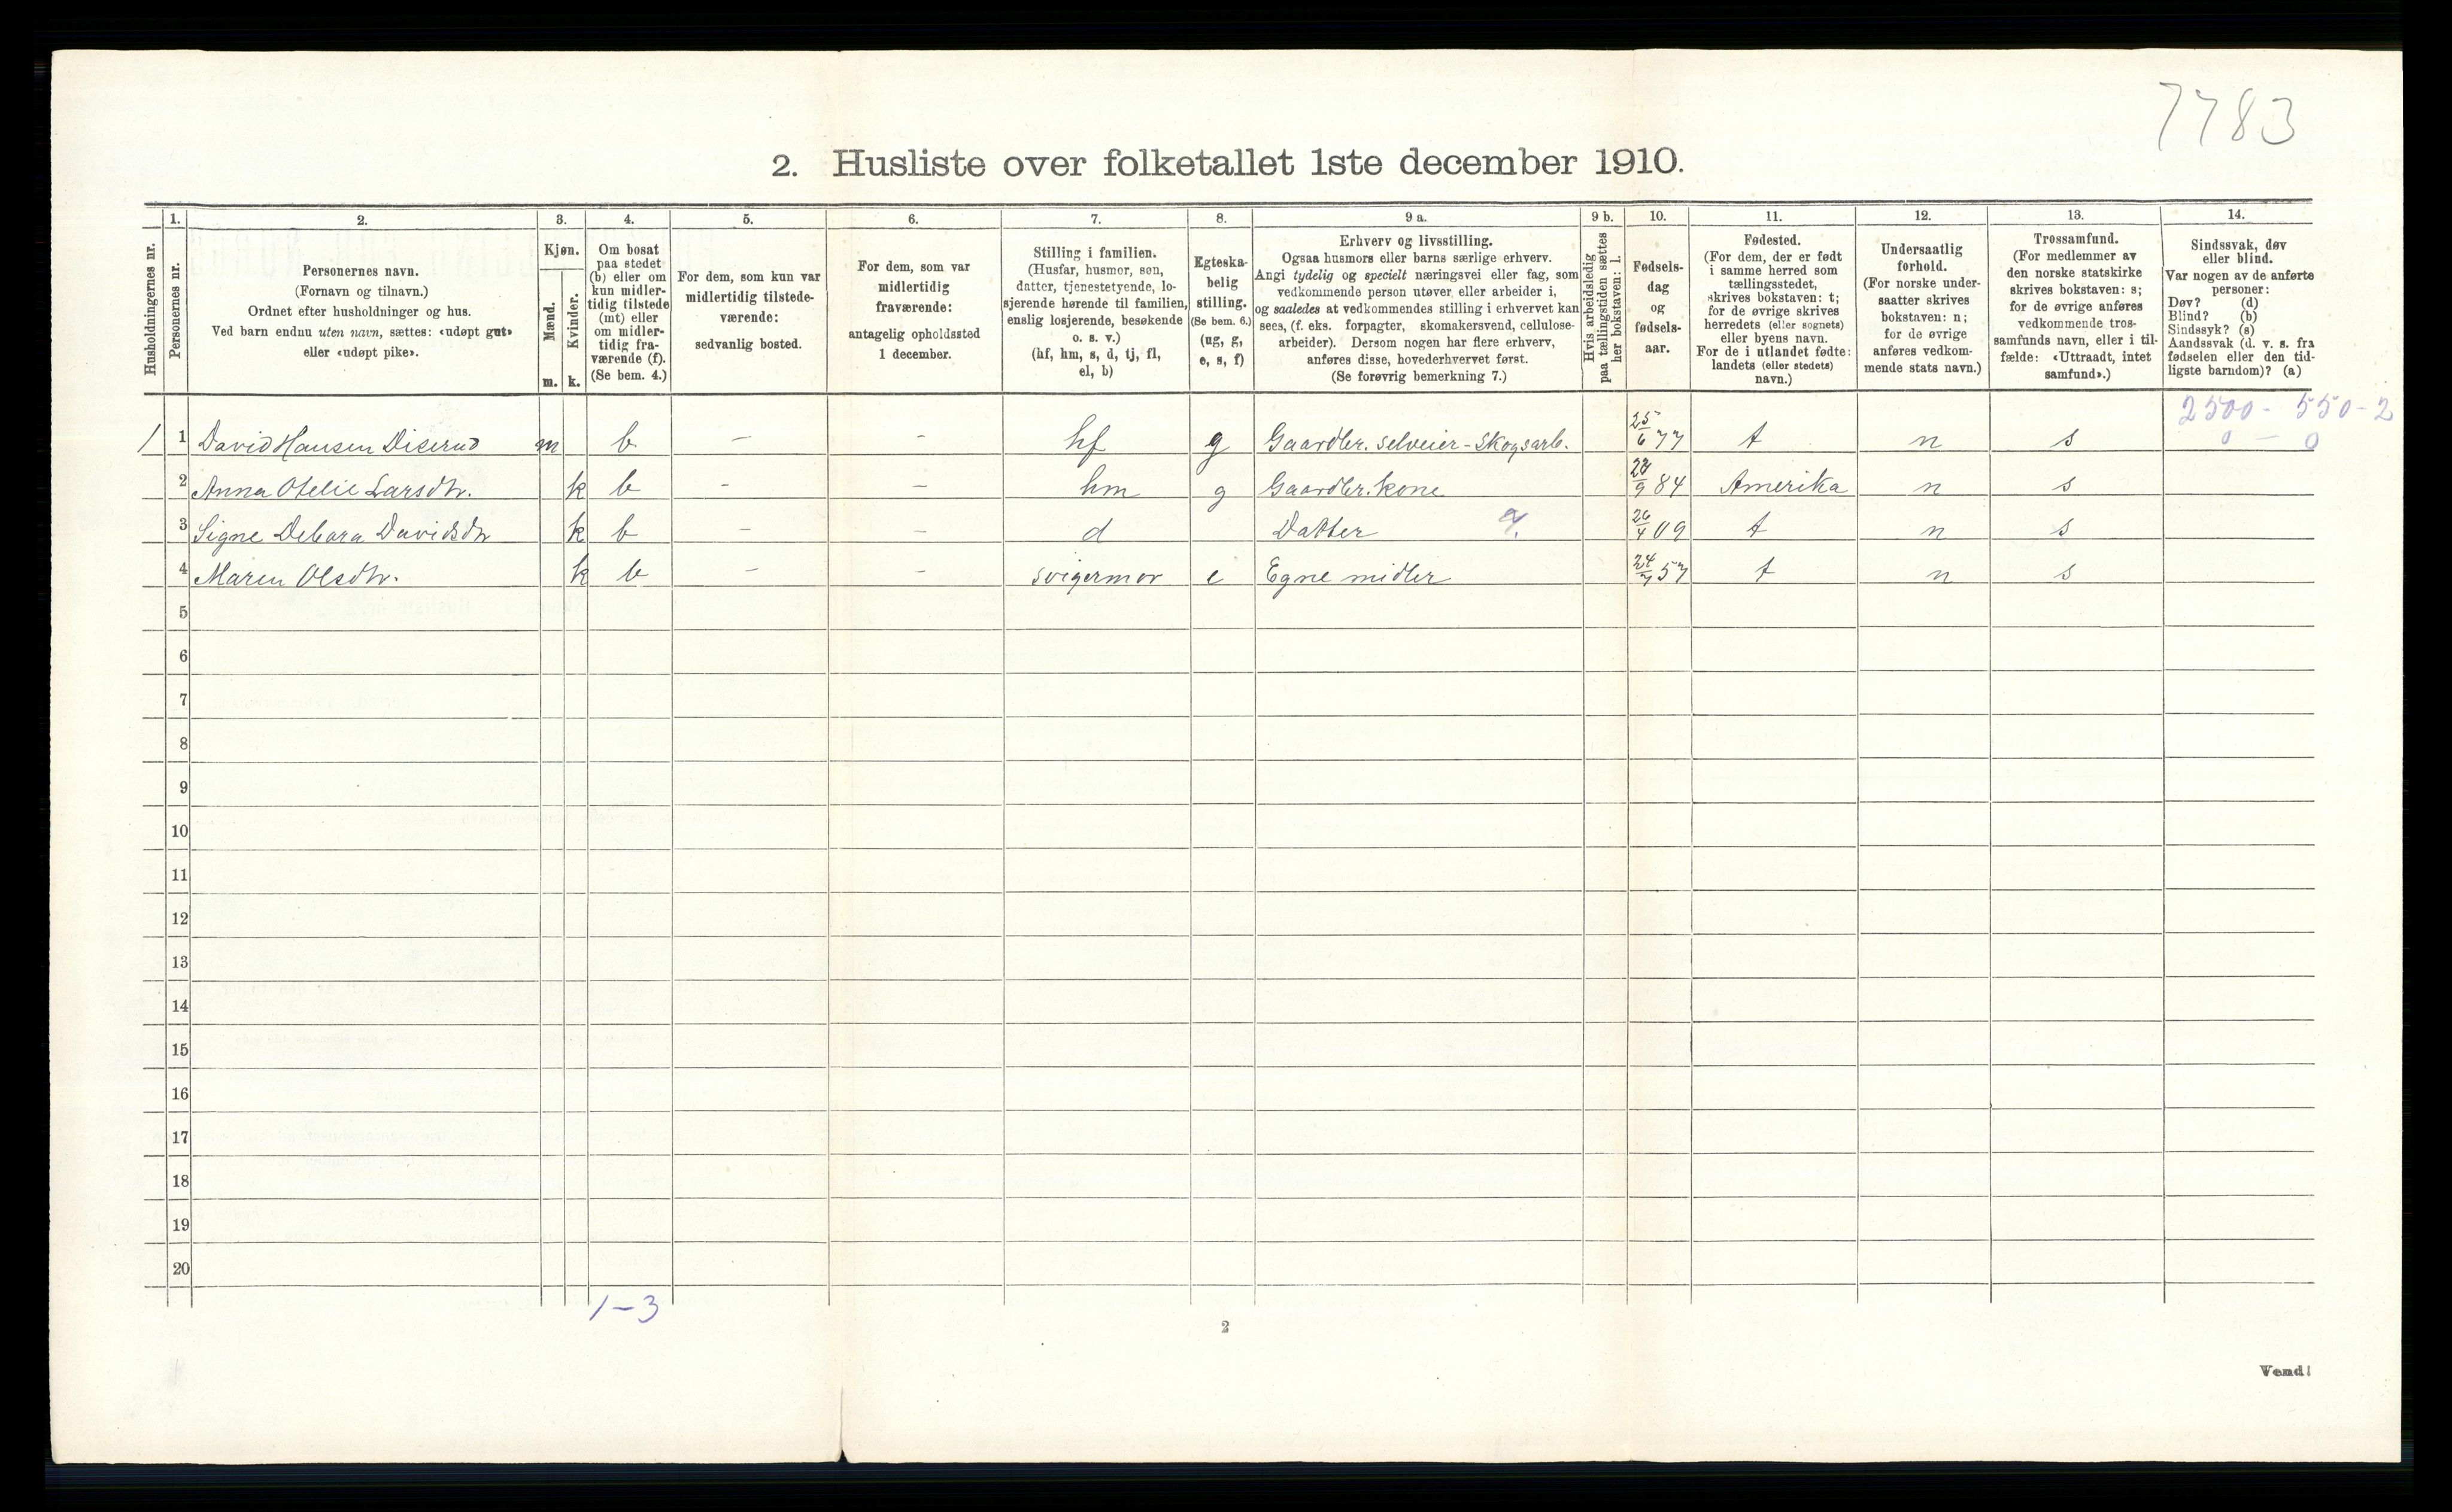 7783
2. Husliste over folketallet 1ste december 1910.
Husholdningernes nr.
1.
Personernes nr.
2.
Personernes navn.
(Fornavn og tilnavn.)
Ordnet efter husholdninger og hus.
Ved barn endnu uten navn, sættes: «udøpt gut»
eller «udøpt pike».
3.
Kjøn.
Mænd.
m.
Kvinder.
k.
4.
Om bosat
paa stedet
(b) eller om
kun midler-
tidig tilstede
(mt) eller
om midler-
tidig fra-
værende (f).
(Se bem. 4.)
5.
For dem, som kun var
midlertidig tilstede-
værende:
sedvanlig bosted.
6.
For dem, som var
midlertidig
fraværende:
antagelig opholdssted
1 december.
7.
Stilling i familien.
(Husfar, husmor, søn,
datter, tjenestetyende, lo-
sjerende hørende til familien,
enslig losjerende, besøkende
o. s. v.)
(hf, hm, s, d, tj, fl,
el, b)
8.
Egteska-
belig
stilling.
(Se bem. 6.)
(ug, g,
e, s, f)
9 a.
Erhverv og livsstilling.
Ogsaa husmors eller barns særlige erhverv.
Angi tydelig og specielt næringsvei eller fag, som
vedkommende person utøver eller arbeider i,
og saaledes at vedkommendes stilling i erhvervet kan
sees, (f. eks. forpagter, skomakersvend, cellulose-
arbeider). Dersom nogen har flere erhverv,
anføres disse, hovederhvervet først.
(Se forøvrig bemerkning 7.)
9 b.
Hvis arbeidsledig
paa tællingstiden sættes
her bokstaven: l.
10.
Fødsels-
dag
og
fødsels-
aar.
11.
Fødested.
(For dem, der er født
i samme herred som
tællingsstedet,
skrives bokstaven: t;
for de øvrige skrives
herredets (eller sognets)
eller byens navn.
For de i utlandet fødte:
landets (eller stedets)
navn.)
12.
Undersaatlig
forhold.
(For norske under-
saatter skrives
bokstaven: n;
for de øvrige
anføres vedkom-
mende stats navn.)
13.
Trossamfund.
(For medlemmer av
den norske statskirke
skrives bokstaven: s;
for de øvrige anføres
vedkommende tros-
samfunds navn, eller i til-
fælde: «Uttraadt, intet
samfund».)
14.
Sindssvak, døv
eller blind.
Var nogen av de anførte
personer:
Døv? (d)
Blind? (b)
Sindssyk? (s)
Aandssvak (d. v. s. fra
fødselen eller den tid-
ligste barndom)? (a)
2500 - 550 - 2
0 - 0
1 1 David Hansen Diserud m b - - hf g Gaardbr. selveier - Skogsarb. 25/6 77 t n s
2 Anna Otelie Larsdtr. k b - - hm g Gaardbr. kone 9 84 Amerika n s
3 Signe Debora Davidsdtr k b - - d Datter 26/4 09 t n s
4 Maren Olsdtr. k b - - svigermor e Egne midler 24/7 57 t n s
5
6
7
8
9
10
11
12
13
14
15
16
17
18
19
20
1 - 3
2
Vend!